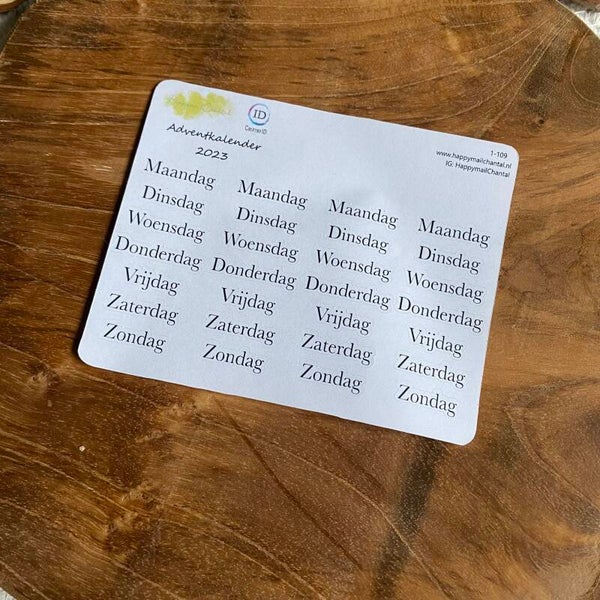 ID
CreatiefID
Adventkalender
2023
1-109
www.happymailchantal.nl
IG: HappymailChantal
Maandag Maandag Maandag Maandag
Dinsdag Dinsdag Dinsdag Dinsdag
Woensdag Woensdag Woensdag Woensdag
Donderdag Donderdag Donderdag Donderdag
Vrijdag Vrijdag Vrijdag Vrijdag
Zaterdag Zaterdag Zaterdag Zaterdag
Zondag Zondag Zondag Zondag